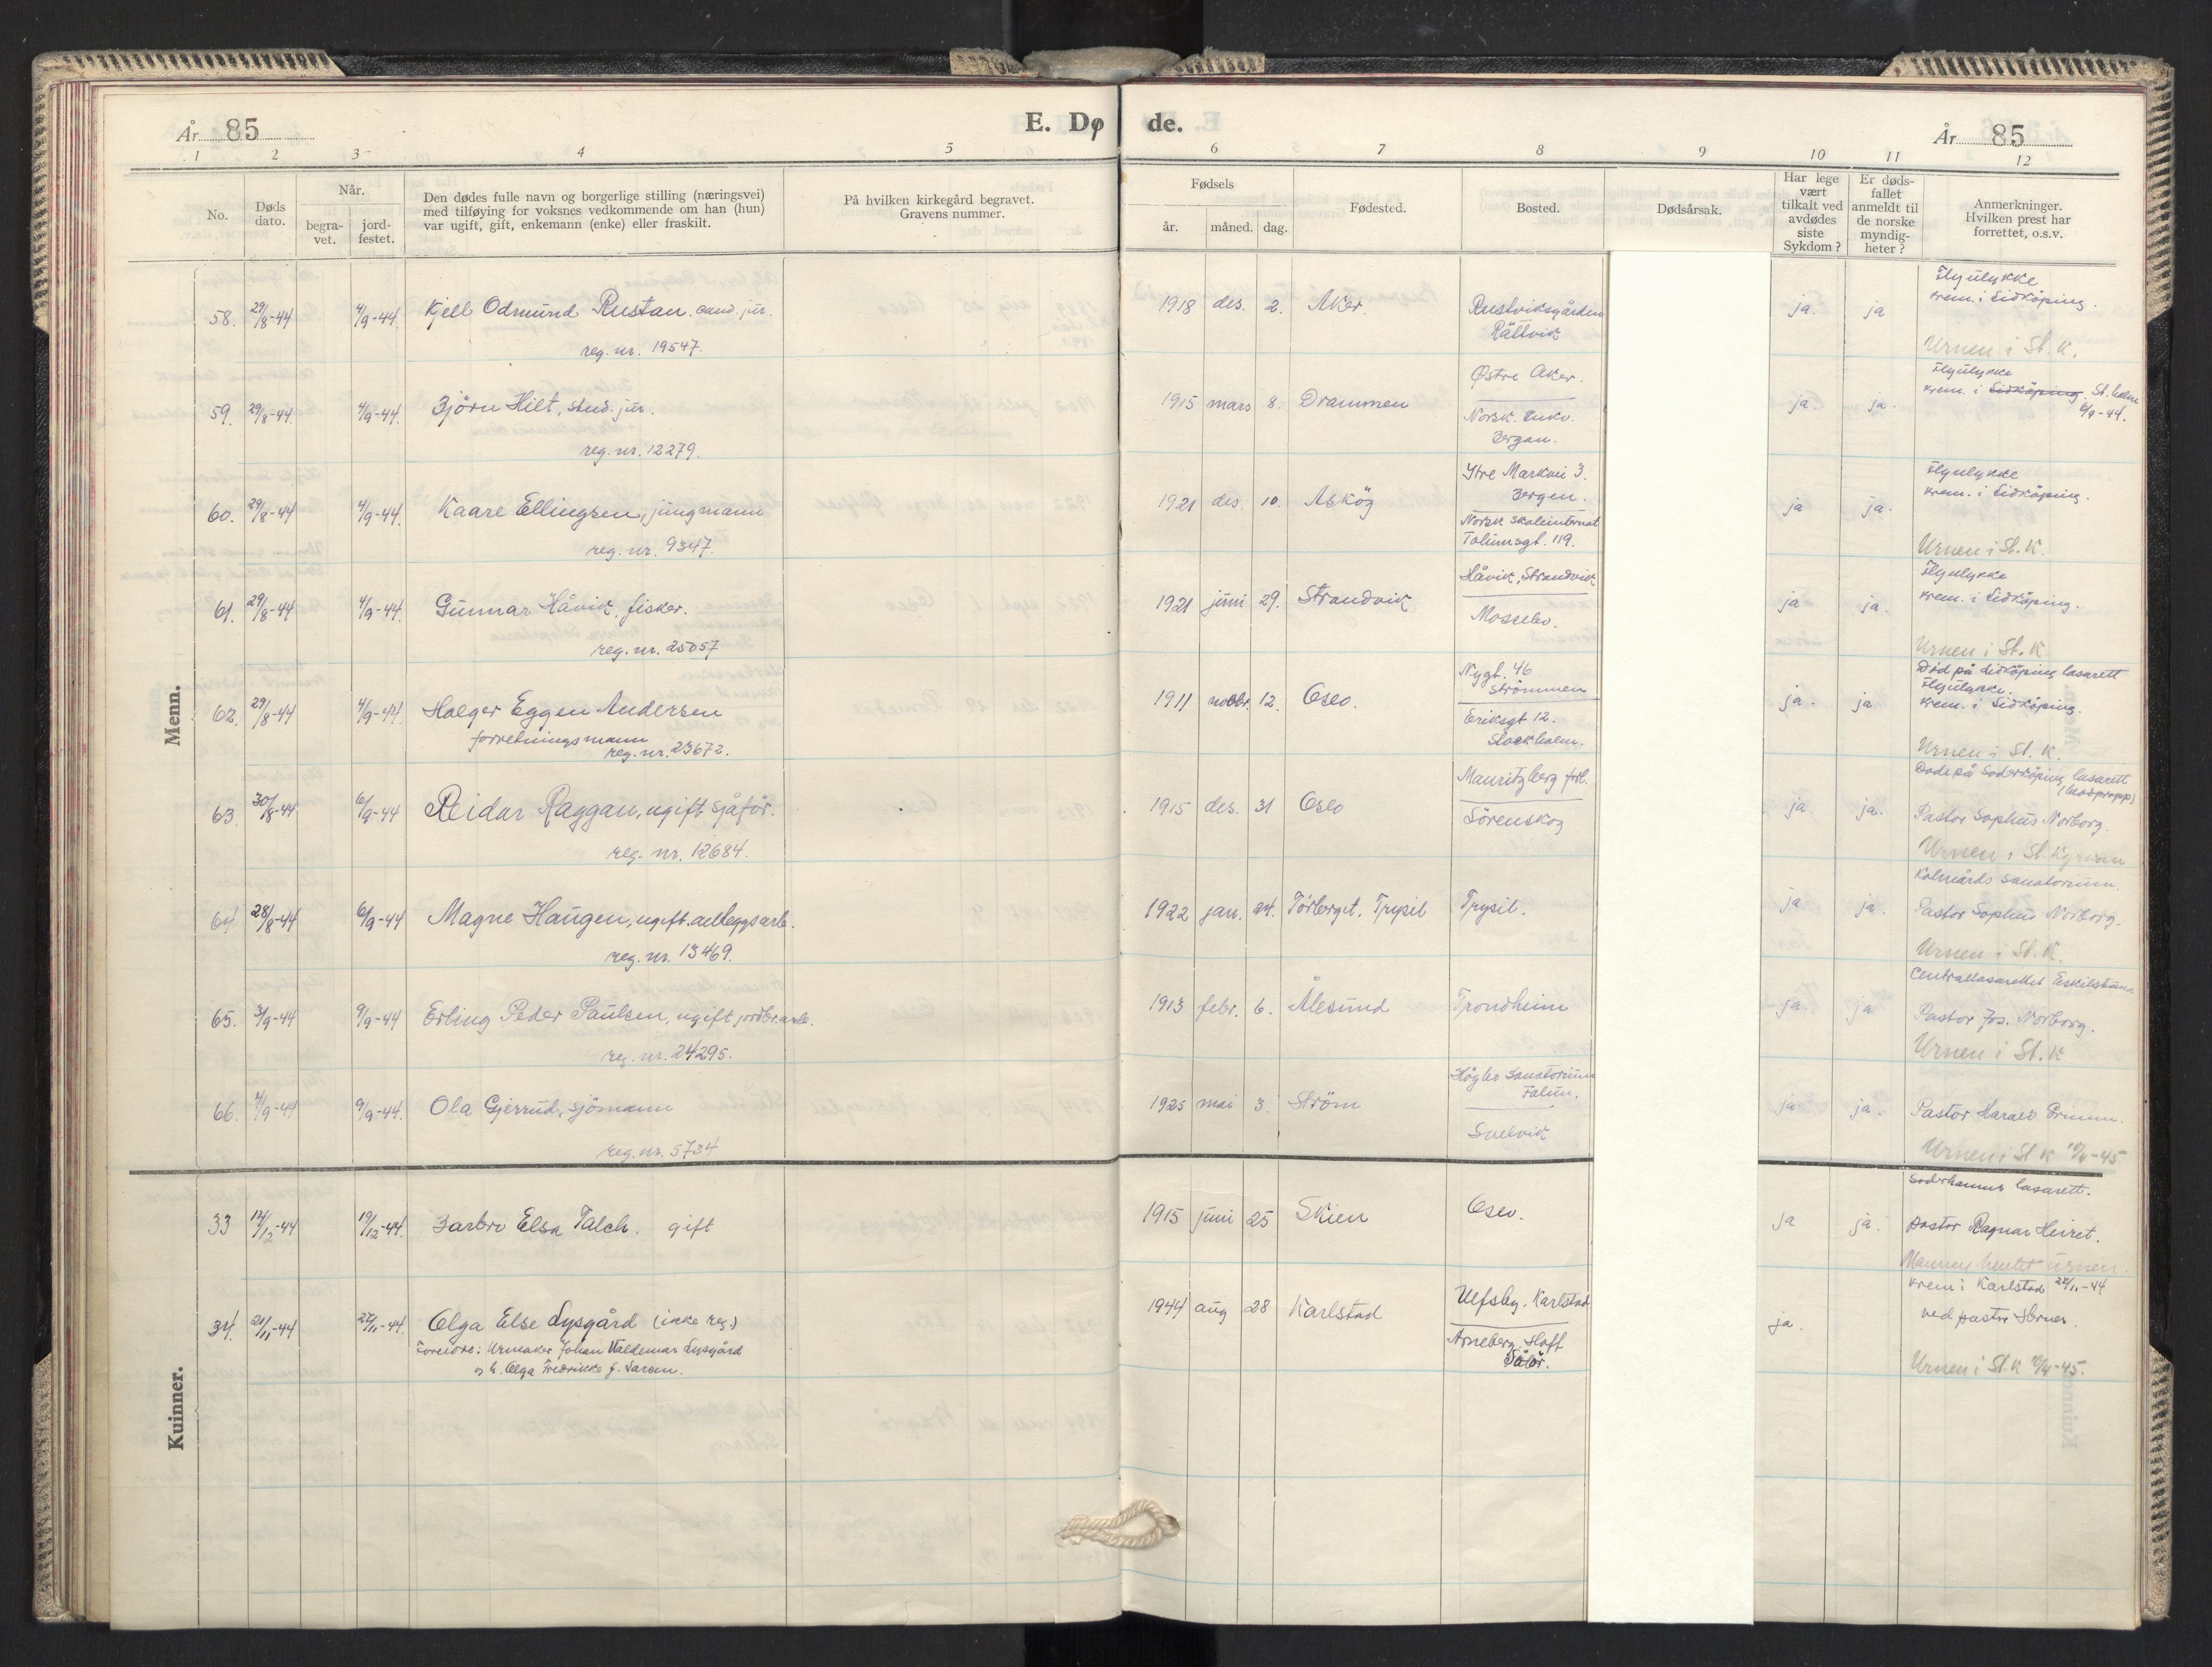 År 85
E. Døde.
År 85
1 2 3 4 5 6 7 8 9 10 11 12
No.
Døds dato.
Når.
begravet.
jordfestet.
Den dødes fulle navn og borgerlige stilling (næringsvei)
med tilføying for voksnes vedkommende om han (hun)
var ugift, gift, enkemann (enke) eller fraskilt.
På hvilken kirkegård begravet.
Gravens nummer.
Fødsels
år. måned. dag.
Fødested.
Bosted.
Dødsårsak.
Har lege
vært
tilkalt ved
avdødes
siste
Sykdom?
Er dødsfallet
anmeldt til
de norske
myndigheter?
Anmerkninger.
Hvilken prest har
forrettet, o.s.v.
Menn.
58. 29/8-44 4/9-44. Kjell Odmund Rustan. cand. jur.
reg. nr. 19547.
1918 des. 2. Aker.
Rustviksgården
Rättvik
ja. ja
Flyulykke
krem. i Lidköping.
Urnen i St. K.
59. 29/8-44. 4/9-44. Björn Hilt, stud. jur.
reg. nr. 12279.
1915 mars 8. Drammen
Østre Aker.
Norsk.
ja. ja.
Flyulykke
krem. i Lidköping. St.holm
6/9-44.
60. 29/8-44 4/9-44. Kaare Ellingsen, jungmann
reg. nr. 9347.
1921 des. 10. Asköy
Ytre Markvei 3.
Bergen.
Norsk skoleinternat
ja ja.
Flyulykke
krem. i Lidköping.
Urnen i St. K.
61. 29/8-44 4/9-44. Gunnar Håvik, fisker.
reg. nr. 25057
1921 juni 29. Strandvik
Håvik, Strandvik
Mossebo.
ja ja.
Flyulykke
krem. i Lidköping.
Urnen i St. K
62. 29/8-44 4/9-44. Holger Eggen Andersen
forretningsmann
reg. nr. 23672.
1911 novbr. 12. Oslo.
Nygt. 46
Strömmen
Eriksgt 12.
Stockholm.
ja. ja
Död på Lidköping lasarett
Flyulykke.
krem. i Lidköping.
Urnen i St. K.
63. 30/8-44 6/9-44 Reidar Raggan, ugift sjåför.
reg. nr. 12684.
1915 des. 31 Oslo
Mauritzberg forl.
Sörenskog
ja. ja.
Döde på Söderköping lasarett
(blodpropp)
Pastor Sophus Norborg.
Urnen i St.
64 28/8-44 6/9-44 Magne Haugen, ugift. anleggsarb.
reg. nr. 13469.
1922 jan. 24. Törberget. Trysil Trysil.
ja ja.
Kolmårds sanatorium.
Pastor Sophus Norborg.
Urnen i St. K.
65. 3/9-44 9/9-44 Erling Peder Paulsen, ugift jordbr.arb.
reg. nr. 24295.
1913 febr. 6. Ålesund Trondheim
ja. ja
Centrallasarettet Eskilstuna
Pastor Jos. Norborg.
Urnen i St. K
66. 4/9-44 9/9-44. Ola Gjerrud, sjömann
reg. nr. 5734
1925 mai 3. Ström
Högbo Sanatorium
Falun.
Svelvik
ja ja.
Pastor Harald Grimm.
Urnen i St K 10/4-45
Kuinner.
33 12/12-44 19/12-44. Barbro Elsa Talch. gift
1915 juni 25 Skien Oslo.
ja ja.
Söderhamns lasarett.
pastor Ragnar Heiret.
Mannen hentet urnen.
34. 21/11-44 27/11-44. Olga Else Lysgård (ikke reg.)
Foreldre: Urmaker Johan Valdemar Lysgård
og h. Olga Fredrikke f. Larsen.
1944 aug 28 Karlstad
Ulfsby. Karlstad
Arneberg. Hoff
Solör.
ja.
krem i Karlstad 27/11-44
ved pastor
Urnen i St. K 10/4-45.